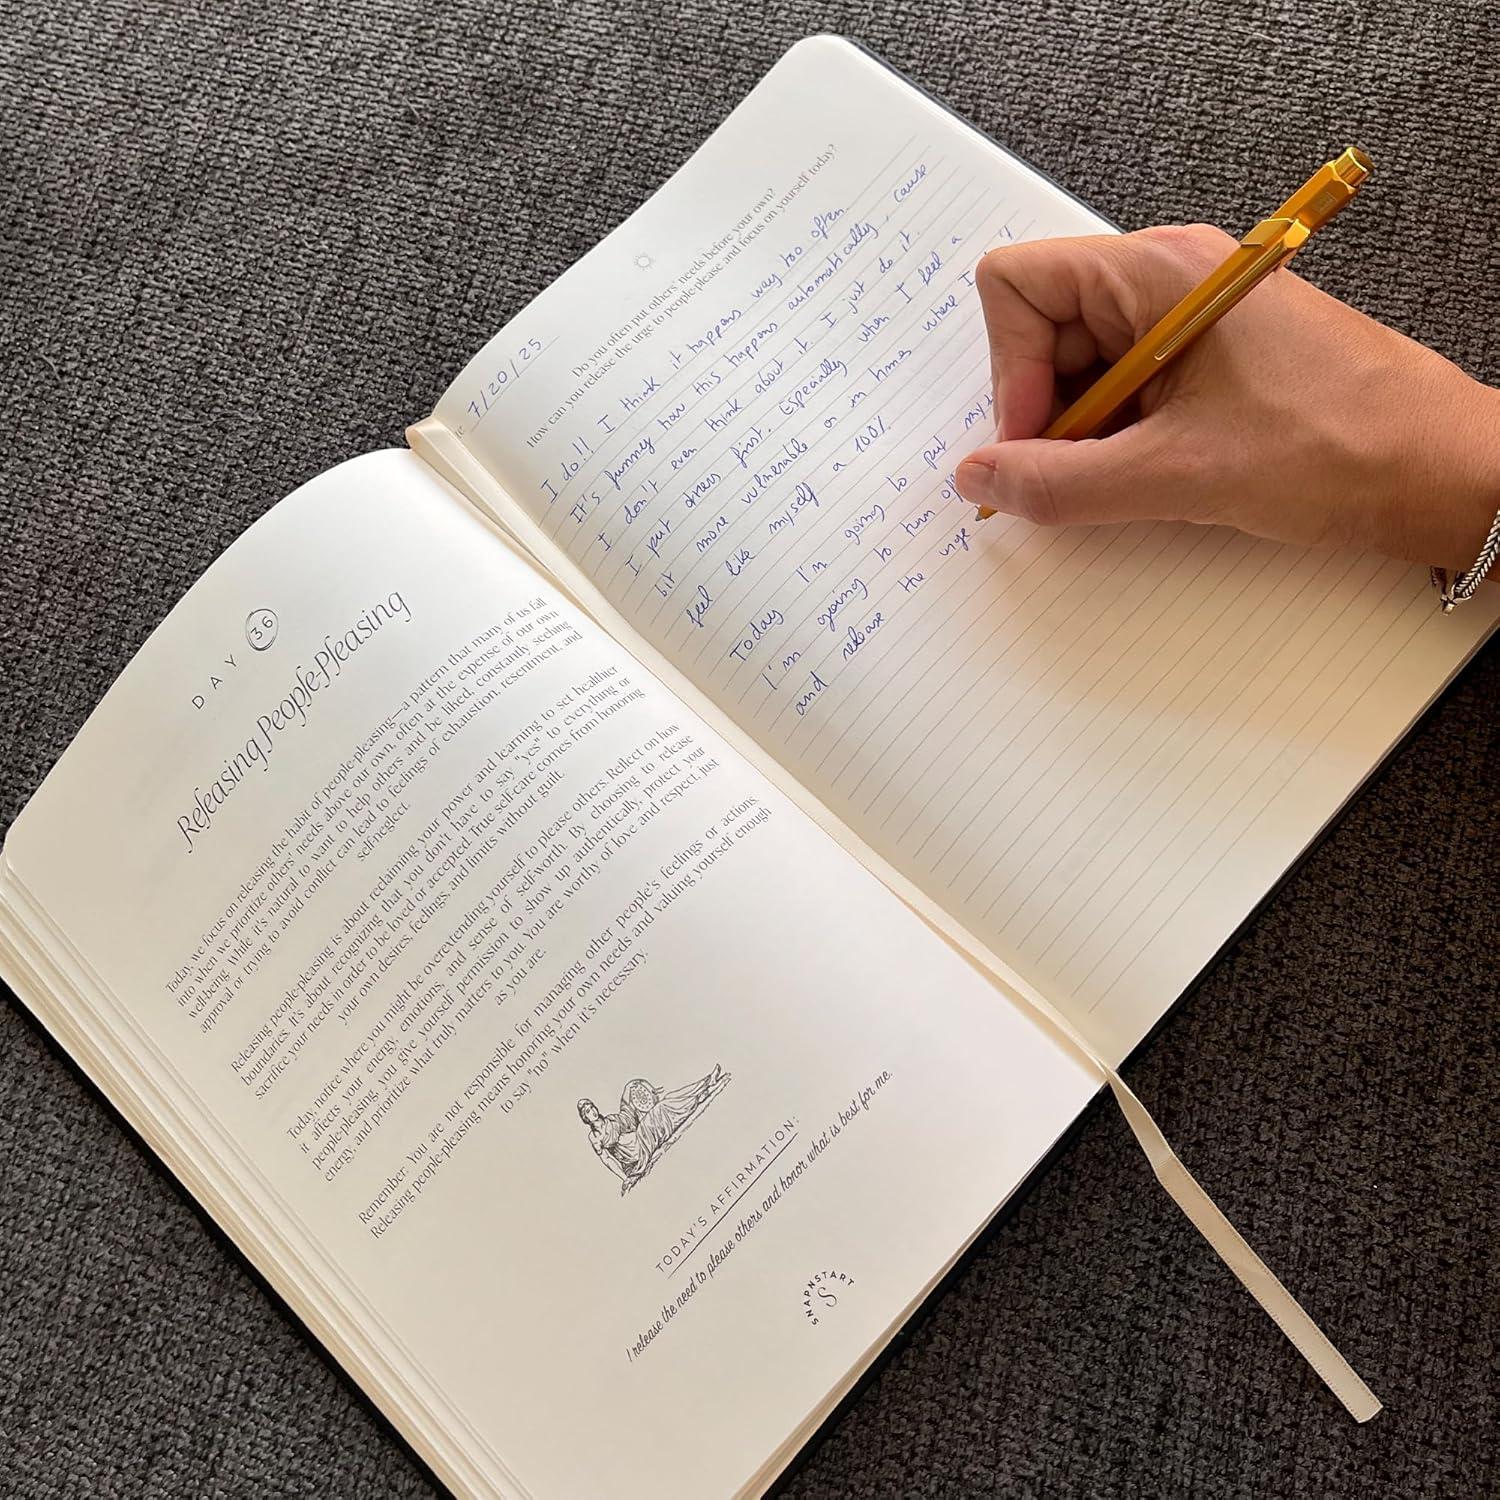 DAY 36
Releasing People-Pleasing
Today, we focus on releasing the habit of people-pleasing—a pattern that many of us fall
into when we prioritize others' needs above our own, often at the expense of our own
well-being. While it's natural to want to help others and be liked, constantly seeking
approval or trying to avoid conflict can lead to feelings of exhaustion, resentment, and
self-neglect.
Releasing people-pleasing is about reclaiming your power and learning to set healthier
boundaries. It's about recognizing that you don't have to say "yes" to everything or
sacrifice your needs in order to be loved or accepted. True self-care comes from honoring
your own desires, feelings, and limits without guilt.
Today, notice where you might be overextending yourself to please others. Reflect on how
it affects your energy, emotions, and sense of self-worth. By choosing to release
people-pleasing, you give yourself permission to show up authentically, protect your
energy, and prioritize what truly matters to you. You are worthy of love and respect, just
as you are.
Remember: You are not responsible for managing other people's feelings or actions.
Releasing people-pleasing means honoring your own needs and valuing yourself enough
to say "no" when it's necessary.
TODAY'S AFFIRMATION:
I release the need to please others and honor what is best for me.
SNAPNSTART
S
7/20/25
Do you often put others' needs before your own?
How can you release the urge to people-please and focus on yourself today?
I do!! I think it happens way too often.
It's funny how this happens automatically, cause
I don't even think about it. I just do it.
I put others first. Especially when I feel a
bit more vulnerable or in times where I
feel like myself a 100%.
Today I'm going to put
I'm going to turn
and release the urge